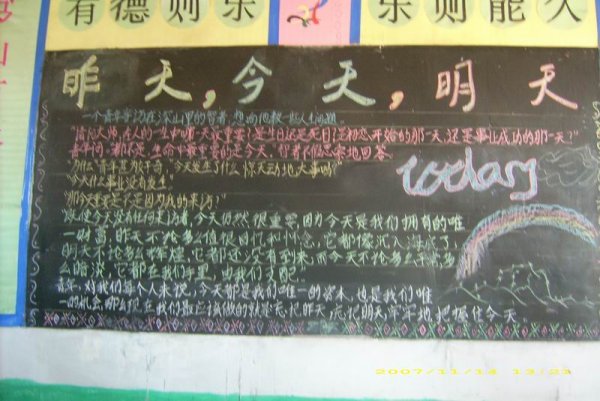 有德则乐
乐则能久
昨天,今天,明天
一个青年学访在深山里的智者,想向他救一些人生问题。
"请问大师,在人的一生中哪一天最重要?是生日还是死日?是初恋开始的那一天,还是事业成功的那一天?"
"都不是,生命中最重要的是今天。"智者不假思索地回答。
"为什么?"青年甚为好奇。"今天发生了什么惊天动地大事吗?"
"今天什么事业没有发生。"
"那今天重要是不是因为我的来访?"
"即使今天没有任何来访者,今天仍然很重要,因为今天是我们拥有的唯
一财富。昨天不论多么值很回忆和怀念,它都像沉入海底了,
明天不论多么辉煌,它都还没有到来;而今天不论多么平常多
么暗淡,它都在我们手里,由我们支配。"
对我们每个人来说,今天都是我们唯一的资本,也是我们唯
一的机会。那么现在我们最应该做的就是忘记昨天,忘记明天,牢牢地把握住今天。
today
2007/11/14 13:23